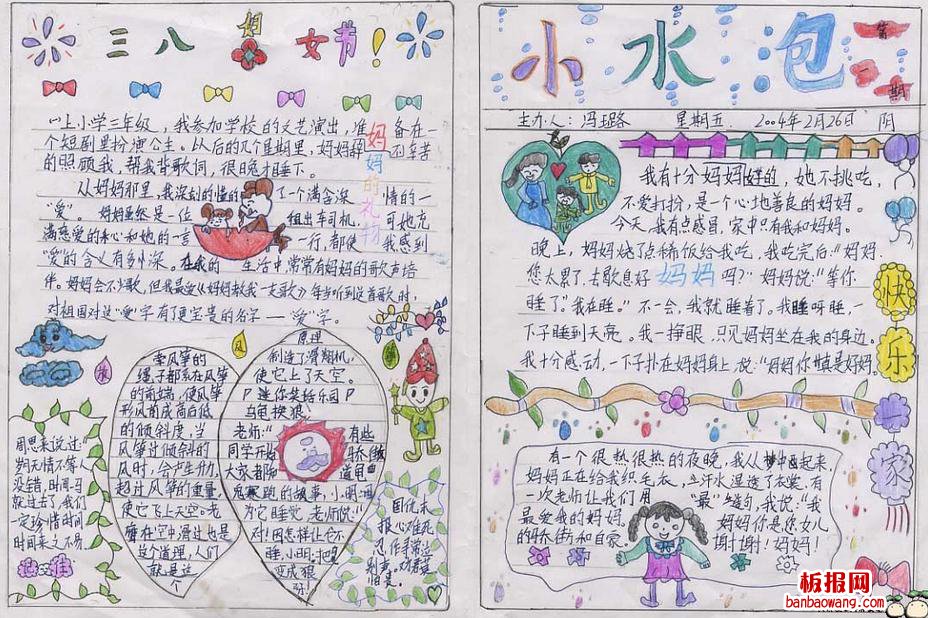 三八妇女节！
一上小学三年级，我参加学校的文艺演出，准备在一
个短剧里扮演公主。从后的几个星期里，妈妈辞不辛苦
的照顾我，帮我背歌词，很晚才睡下。
妈妈的礼物
从妈妈那里，我深刻的懂的了一个满含深情的
“爱”。妈妈虽然是一位组出车司机，可她充
满慈爱的来心和她的一言一行，都使我感到
“爱”的含义有多么深。在我的生活中常常有妈妈的歌声陪
伴。妈妈会不少歌，但我最爱《妈妈教我一支歌》每当听到这首歌时，
对祖国对这“爱”字有了更宝贵的名字——“爱”字。
牵风筝的
绳子都系在风筝
的前端，使风筝
形成前成高后低
的倾斜度，当
风筝过倾斜的
风时，会产生升力，
超过风筝的重量，
使它飞上天空。老
在空中滑过也是
这个道理，人们
就是这
个
原理
制造了滑翔机，
使它上了天空。
P迷你笑好乐园P
乌龟挨狼
老师：“有些
同学开始
大家都知道龟
兔赛跑的故事，小明，
为它睡觉，老师说：“
对！因怎样让它不
睡，小明：把
变成狼
周恩来说过：“
岁月无情不等人”
没错，时间一马
就过去了，我们
一定珍惜时间，
时间来之不易。
记住
国仇未
报心难死，
忍作寻常泣
别声。
小水泡
第一期
主办人：冯珏路 星期五 2004年2月26日 阴
我有十分妈妈好的，她不挑吃，
不爱打扮，是一个心地善良的妈妈。
今天，我有点感冒，家中只有我和妈妈。
晚上，妈妈烧了点稀饭给我吃，我吃完后：“妈妈，
您太累了，去歇息好吗？”妈妈说：“等你
妈妈
睡了”我在睡。”不一会，我就睡着了，我睡呀睡，一
下子睡到天亮。我一挣眼，只见妈妈坐在我的身边。
我十分感动，一下子扑在妈妈身上说：“妈妈你真是好妈妈。
快乐家
有一个很热很热的夜晚，我从梦中起来，
妈妈正在给我织毛衣，汗水湿透了衣裳，有
一次老师让我们用“最”造句，我说：“我
最爱我的妈妈。妈妈你是您女儿
的骄街和自豪。谢谢！妈妈！
板报网
banbaowang.com